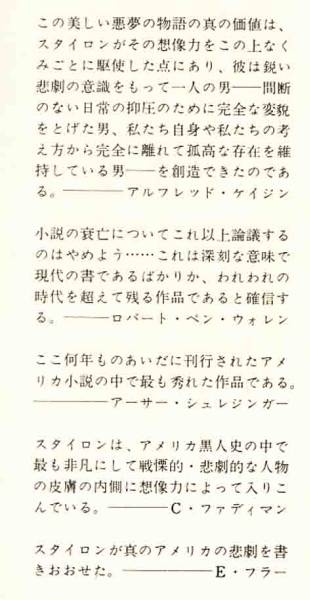 この美しい悪夢の物語の真の価値は、
スタイロンがその想像力をこの上なく
みごとに駆使した点にあり、彼は鋭い
悲劇の意識をもって一人の男──間断
のない日常の抑圧のために完全な変貌
をとげた男、私たち自身や私たちの考
え方から完全に離れて孤高な存在を維
持している男──を創造できたのであ
る。────アルフレッド・ケイジン
小説の衰亡についてこれ以上論議する
のはやめよう……これは深刻な意味で
現代の書であるばかりか、われわれの
時代を超えて残る作品であると確信す
る。───ロバート・ペン・ウォレン
ここ何年ものあいだに刊行されたアメ
リカ小説の中で最も秀れた作品である。
────アーサー・シュレジンガー
スタイロンは、アメリカ黒人史の中で
最も非凡にして戦慄的・悲劇的な人物
の皮膚の内側に想像力によって入りこ
んでいる。───C・ファディマン
スタイロンが真のアメリカの悲劇を書
きおおせた。─────E・フラー